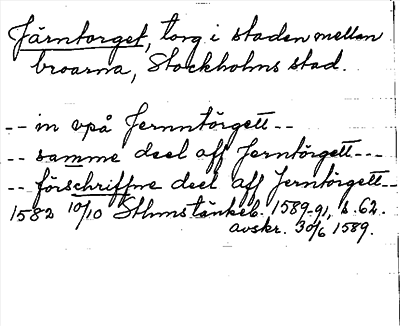 Järntorget, torg i staden mellan
broarna, Stockholms stad.
-- in vpå Jernntörgett--
-- samme deel aff Jerntörgett---
-- förschriffne deel aff Jerntörgett--
1582 10/10 Sthms tänkeb. 1589-91, s. 62.
avskr. 30/6 1589.